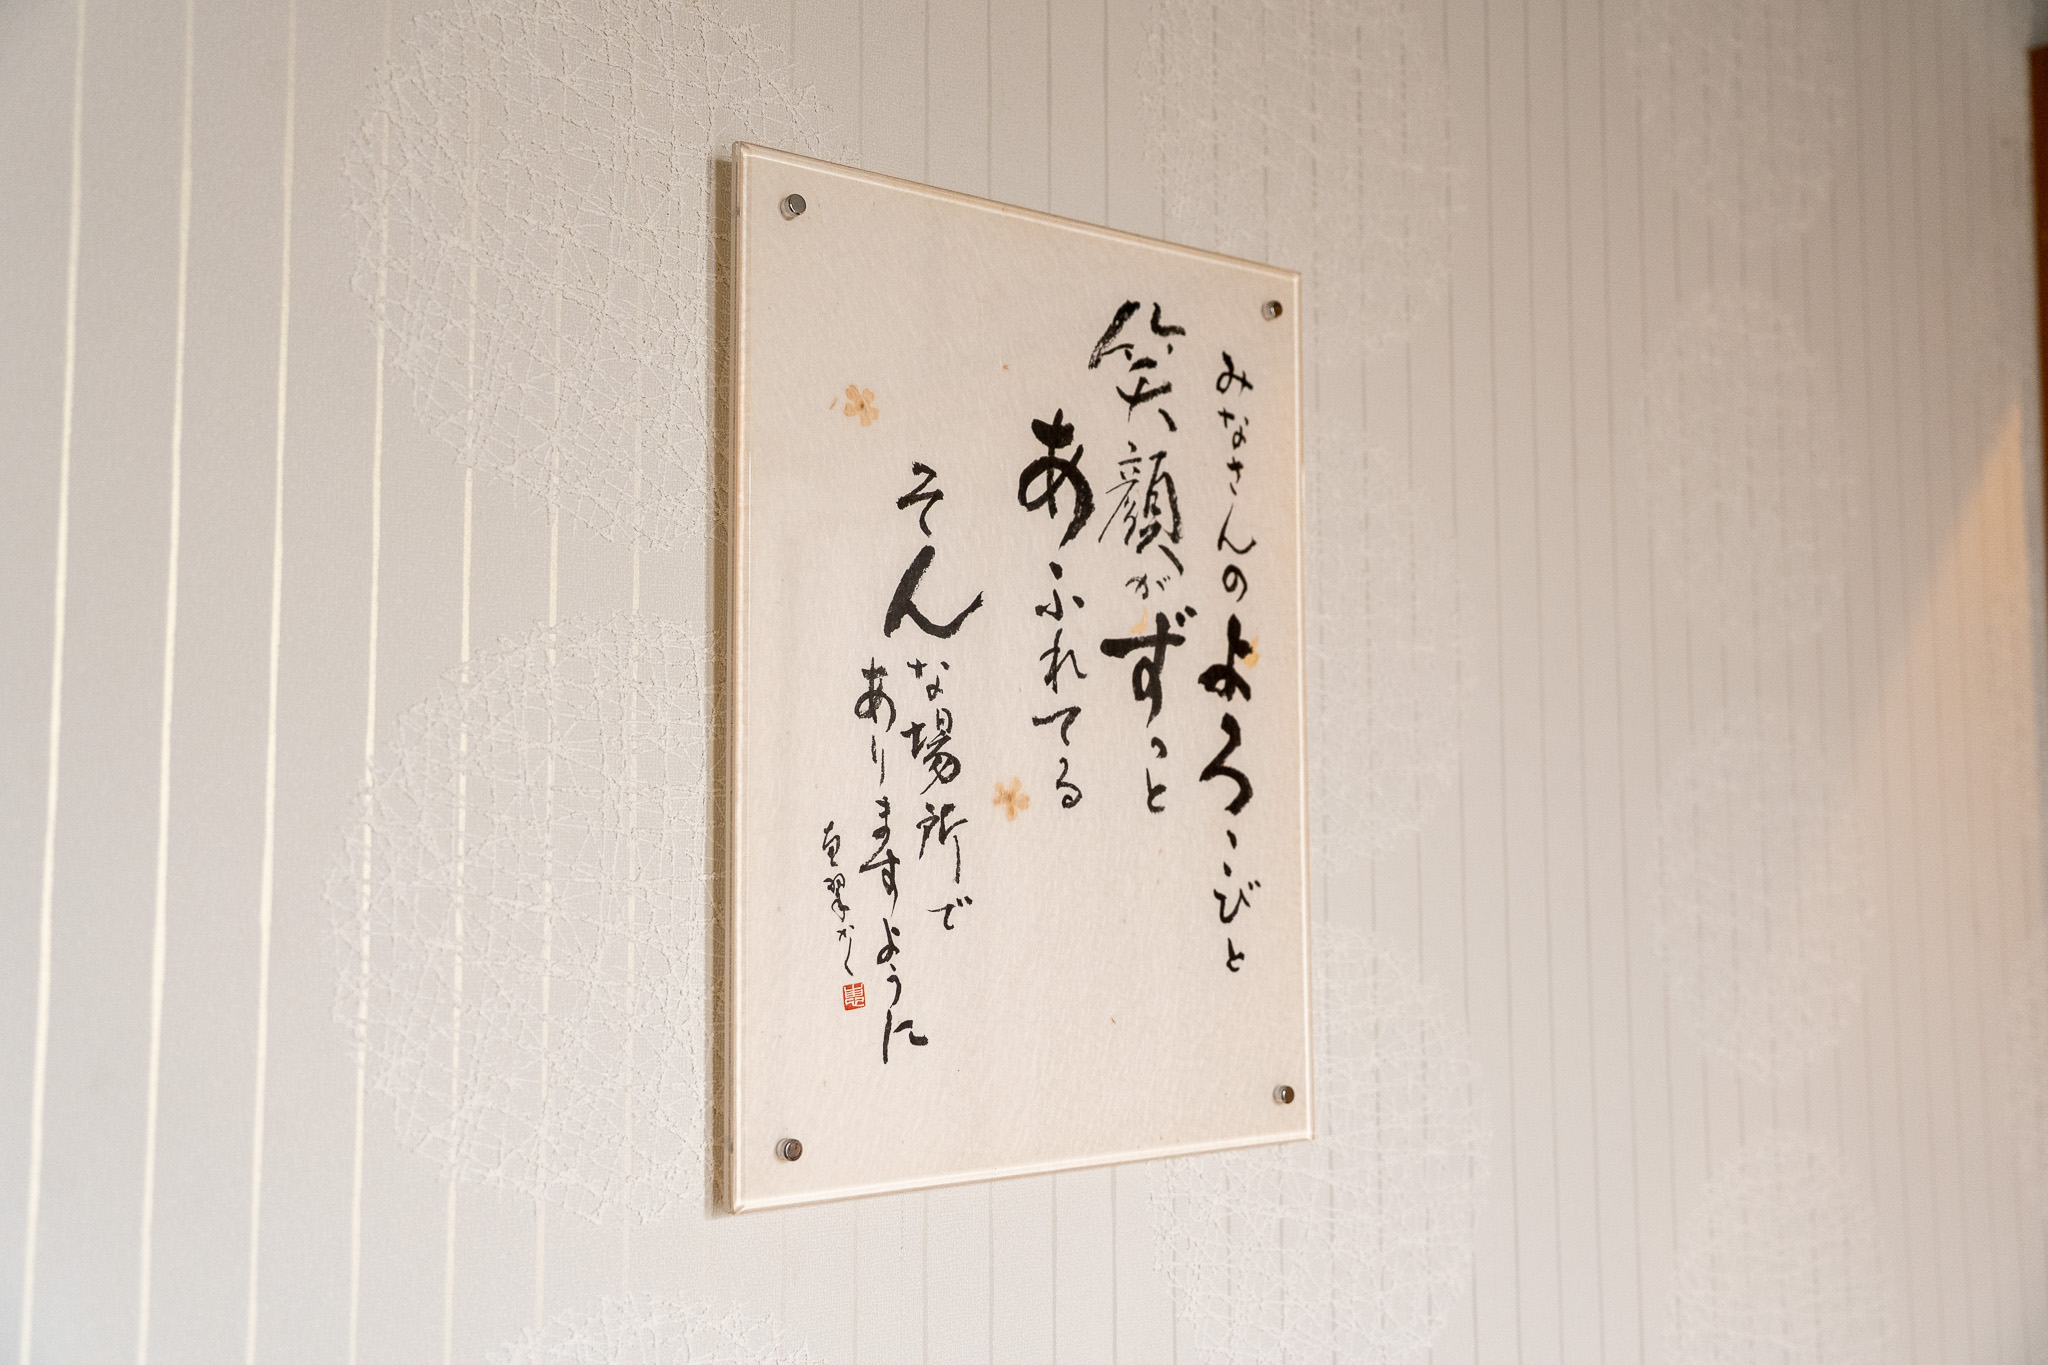 みなさんのよろこびと
笑顔がずっと
あふれてる
そんな場所で
ありますように